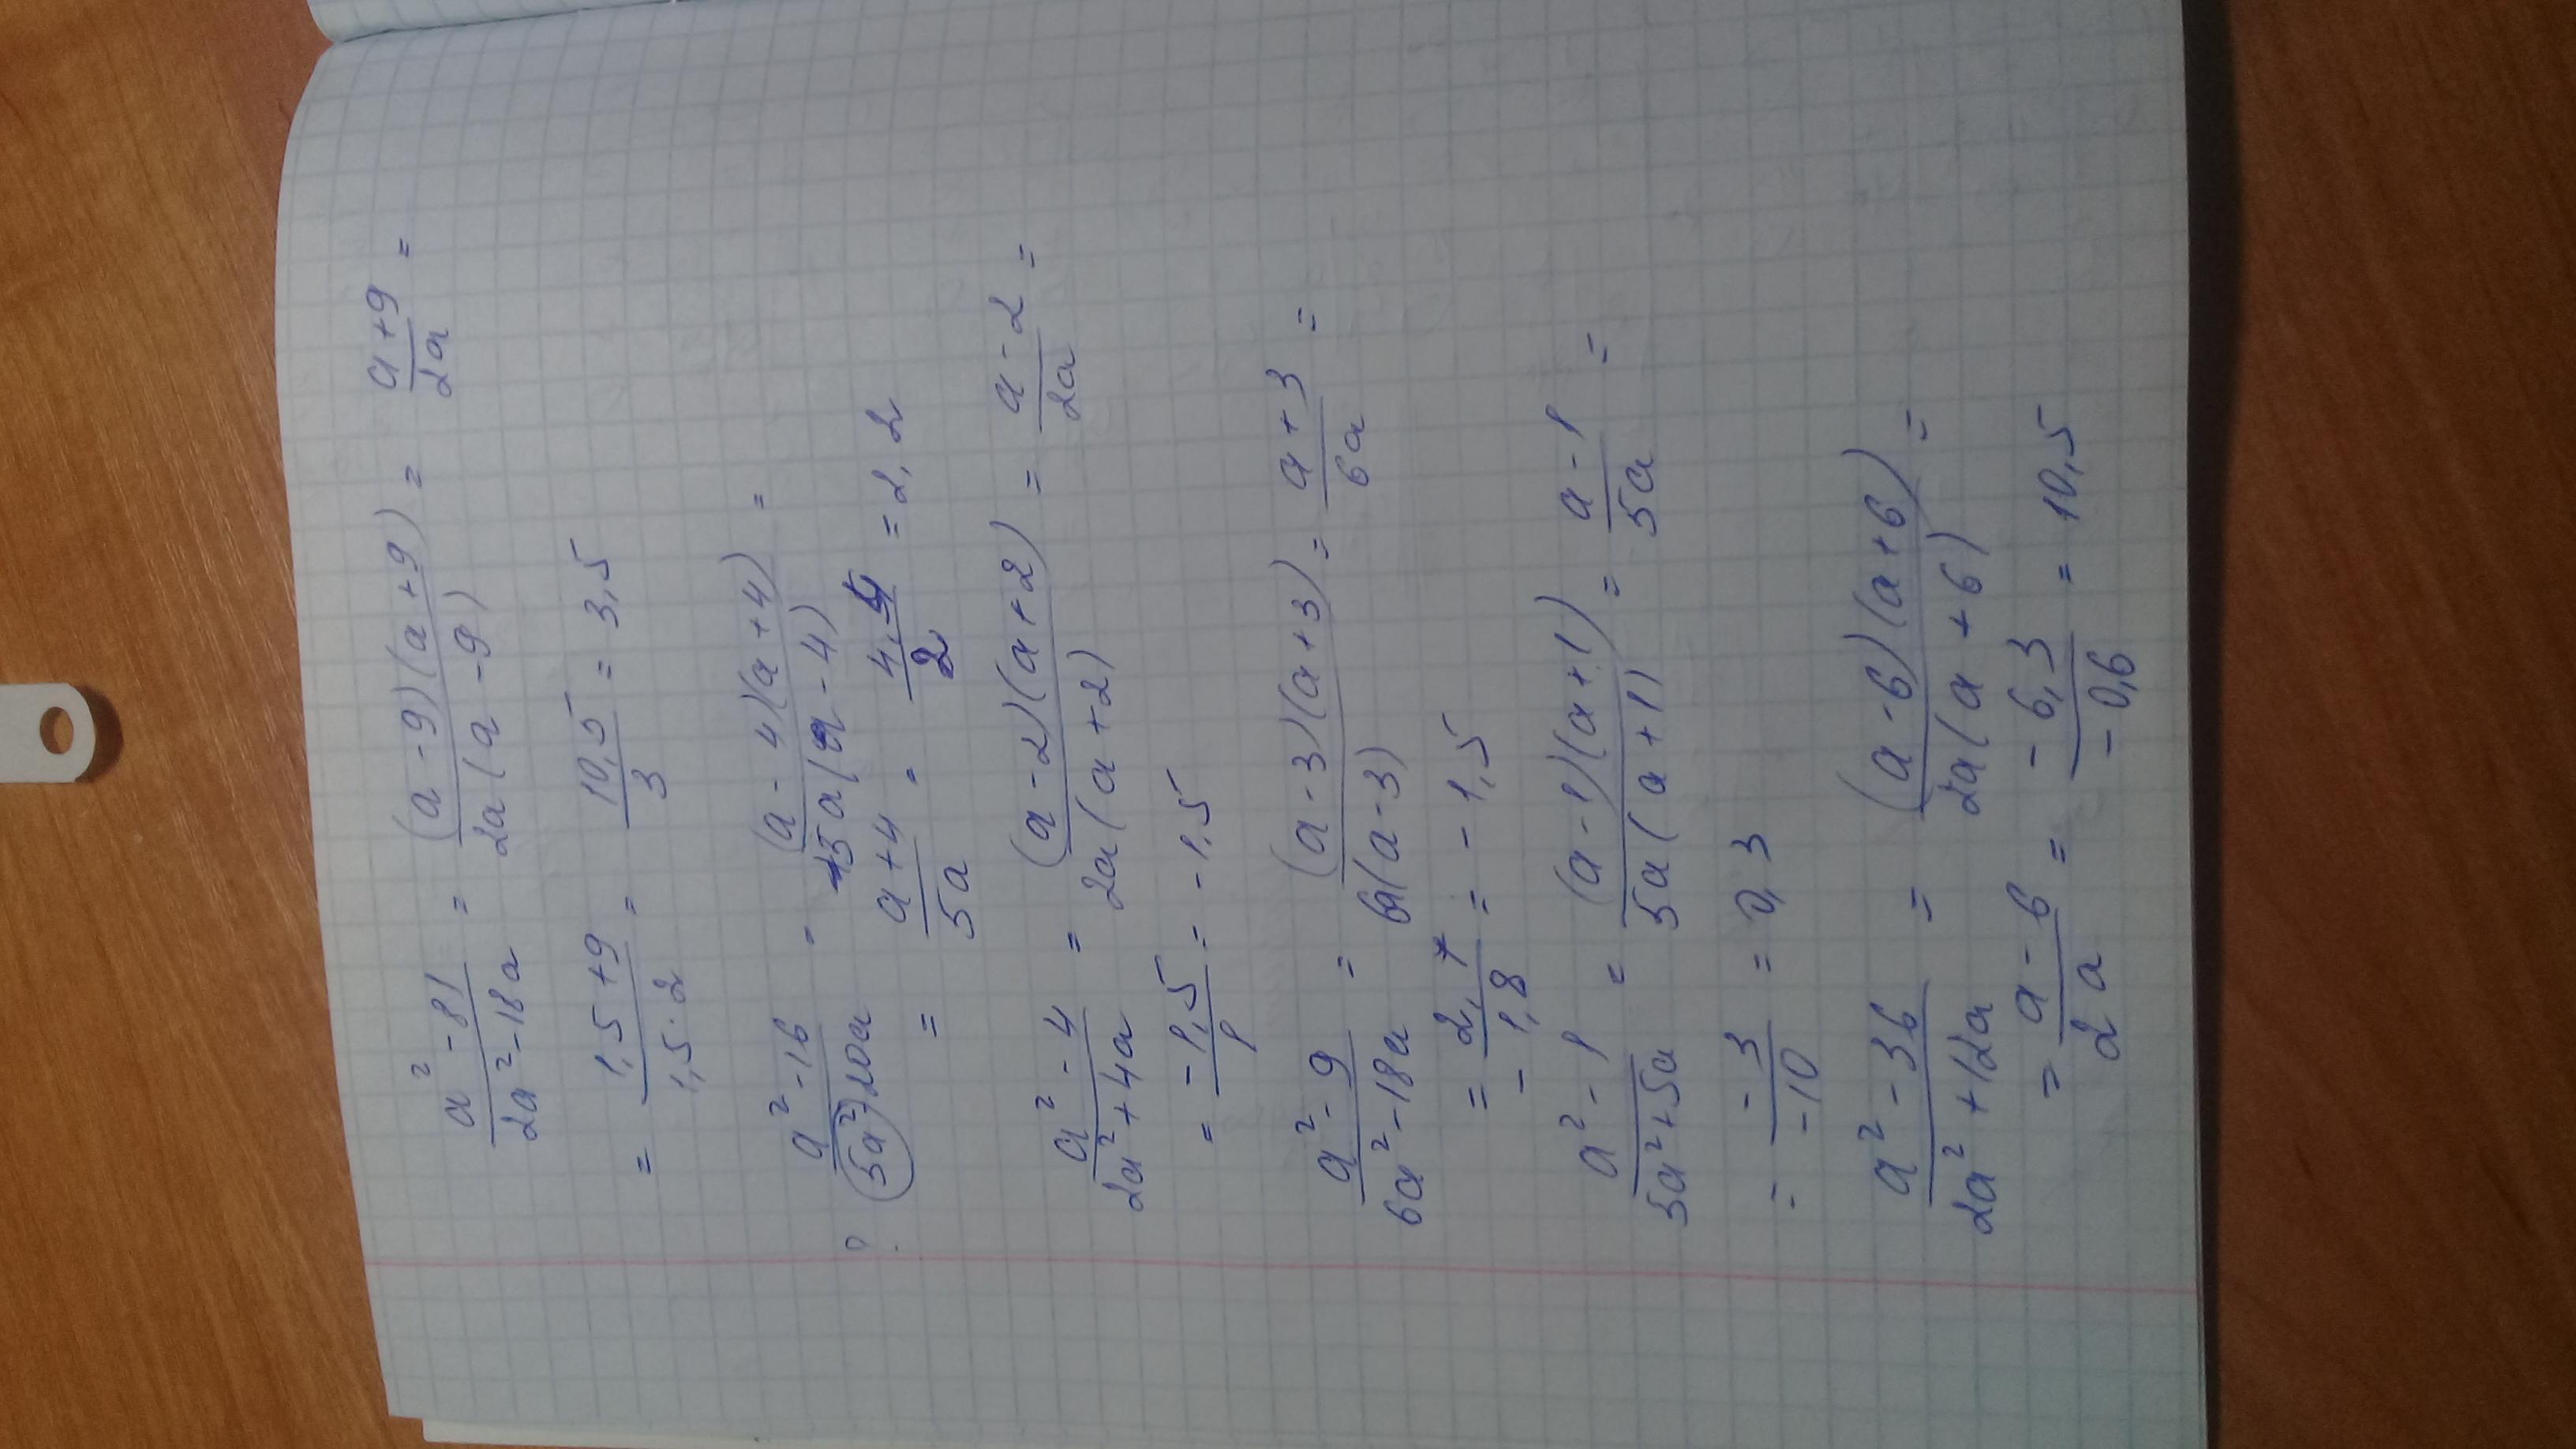 a² - 81 / 2a² - 18a = (a - 9)(a + 9) / 2a(a - 9) = a + 9 / 2a =
= 1,5 + 9 / 1,5 · 2 = 10,5 / 3 = 3,5
a² - 16 / 5a² - 20a = (a - 4)(a + 4) / 5a(a - 4) =
= a + 4 / 5a = 4,4 / 2 = 2,2
a² - 4 / 2a² + 4a = (a - 2)(a + 2) / 2a(a + 2) = a - 2 / 2a =
= -1,5 / 1 = -1,5
a² - 9 / 6a² - 18a = (a - 3)(a + 3) / 6a(a - 3) = a + 3 / 6a =
= 2,7 / -1,8 = -1,5
a² - 1 / 5a² + 5a = (a - 1)(a + 1) / 5a(a + 1) = a - 1 / 5a =
= -3 / -10 = 0,3
a² - 36 / 2a² + 12a = (a - 6)(a + 6) / 2a(a + 6) =
= a - 6 / 2a = -6,3 / -0,6 = 10,5